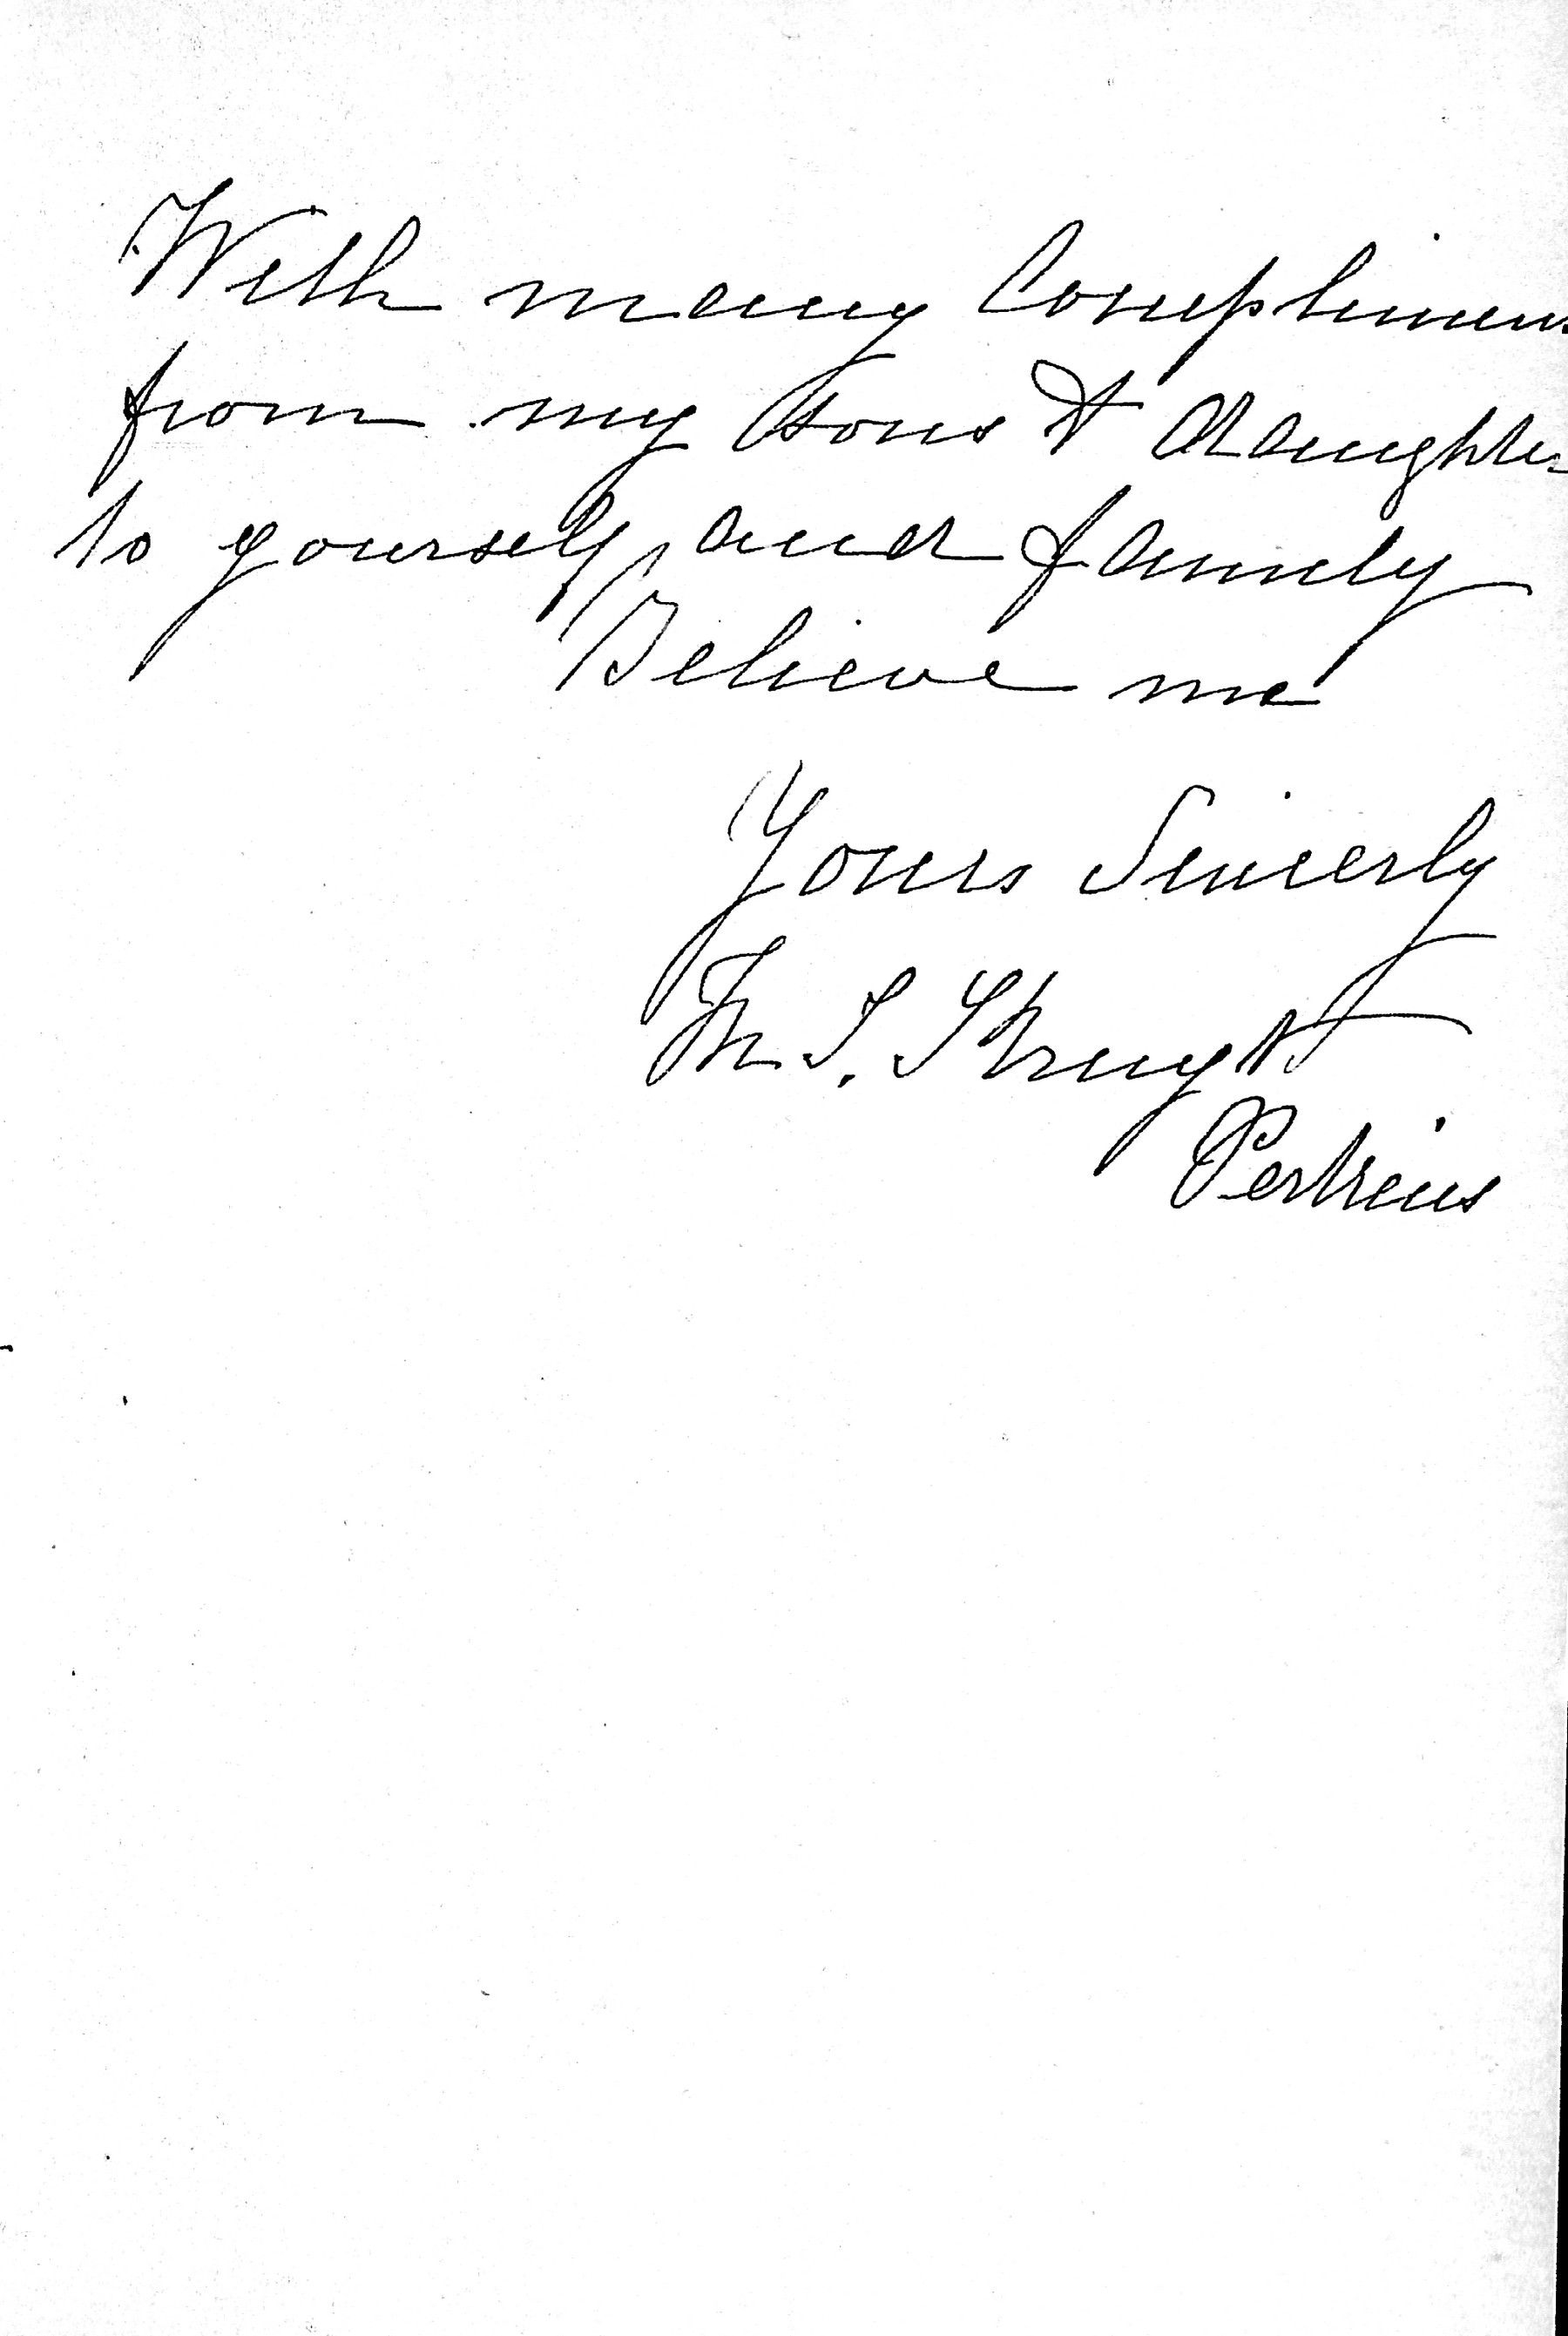 With many Complimen
from my Sons & daughter
to yourself, and family
Believe me
Yours Sincerly
Perkins